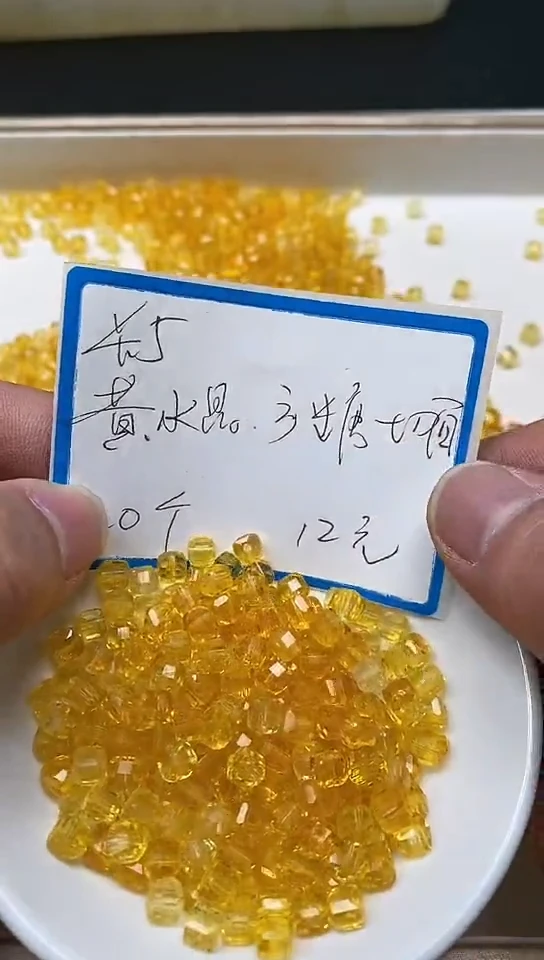 4.5
黄水晶。方块糖切面
0个 12元